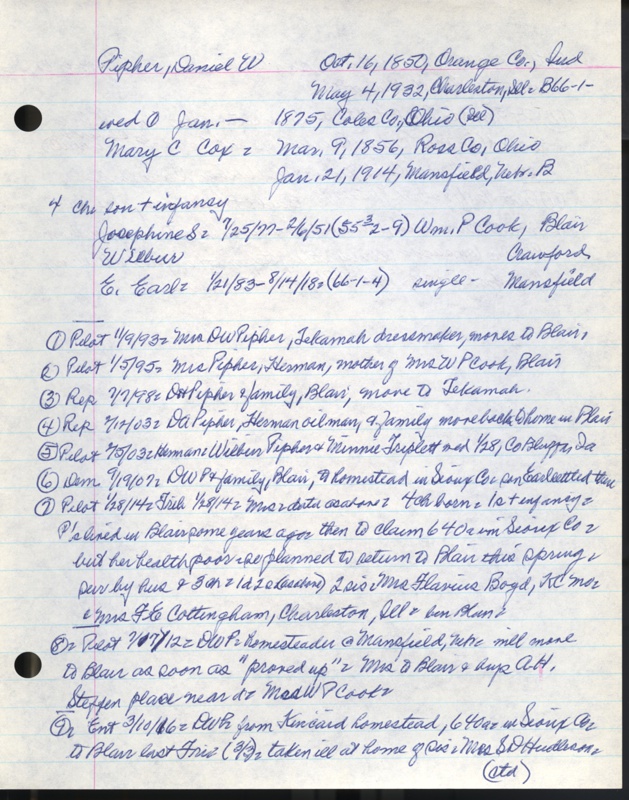 Pipher, Daniel W Oct. 16, 1850, Orange Co., Ind
May 4, 1932, Charleston, Ill = B66-1-
wed ① Jan. — 1875, Coles Co, Ohio (Ill)
Mary C Cox = Mar. 9, 1856, Ross Co, Ohio
Jan. 21, 1914, Mansfield, Nebr. B
4 ch: son + infancy
Josephine S = 7/25/77 - 2/6/51 (55-3/2-9) Wm. P Cook, Blair
Wilbur Crawford
E. Earl = 1/21/83 - 8/14/18 = (66-1-4) single - Mansfield
① Pilot 1/9/93 = Mrs DW Pipher, Tekamah dressmaker, moves to Blair,
② Pilot 1/5/95 = Mrs Pipher, Herman, mother of Mrs W P Cook, Blair
③ Rep 7/7/98 = DW Pipher & family, Blair, move to Tekamah.
④ Rep Pipher, Herman oil man, & family move back to home in Blair
⑤ Pilot 2/5/03 = Herman = Wilbur Pipher & Minnie Triplett wed 1/28, Co Bluffs, Ia
⑥ Dem 9/19/07 = DWP & family, Blair, to homestead in Sioux Co = son Earl settled there
⑦ Pilot 1/28/14 = Trib 1/28/14 = Mrs = data as above = 4 ch born = 1st + infancy =
P's lived in Blair some years ago = then to claim 640a in Sioux Co =
but her health poor = so planned to return to Blair this spring =
sur by hus & 3 ch = 1 d 2 s (as above) 2 sis = Mrs Flavius Boyd, KC Mo =
& Mrs F E Cottingham, Charleston, Ill =
⑧ = Pilot 7/17/12 = DWP = homesteader @ Mansfield, Nebr will move
to Blair as soon as "proved up" = Mrs to Blair & buys A.H.
Steffen place near d = Mrs W P Cook =
⑨ = Ent 3/10/16 = DWP = from Kincaid homestead, 640a = in Sioux Co =
to Blair last Frid (3/3) = taken ill at home of sis = Mrs S D
(ctd)